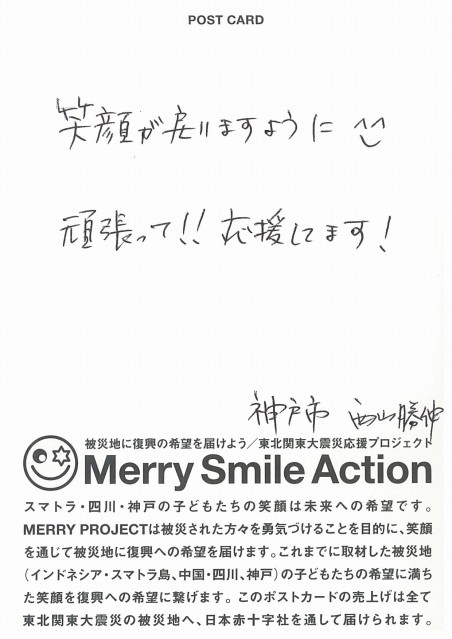 POST CARD
笑顔が戻りますように ^^
頑張って!! 応援してます!
神戸市 西山勝伸
被災地に復興の希望を届けよう/東北関東大震災応援プロジェクト
Merry Smile Action
スマトラ・四川・神戸の子どもたちの笑顔は未来への希望です。
MERRY PROJECTは被災された方々を勇気づけることを目的に、笑顔
を通じて被災地に復興への希望を届けます。これまでに取材した被災地
(インドネシア・スマトラ島、中国・四川、神戸)の子どもたちの希望に満ち
た笑顔を復興への希望に繋げます。このポストカードの売上げは全て
東北関東大震災の被災地へ、日本赤十字社を通して届けられます。